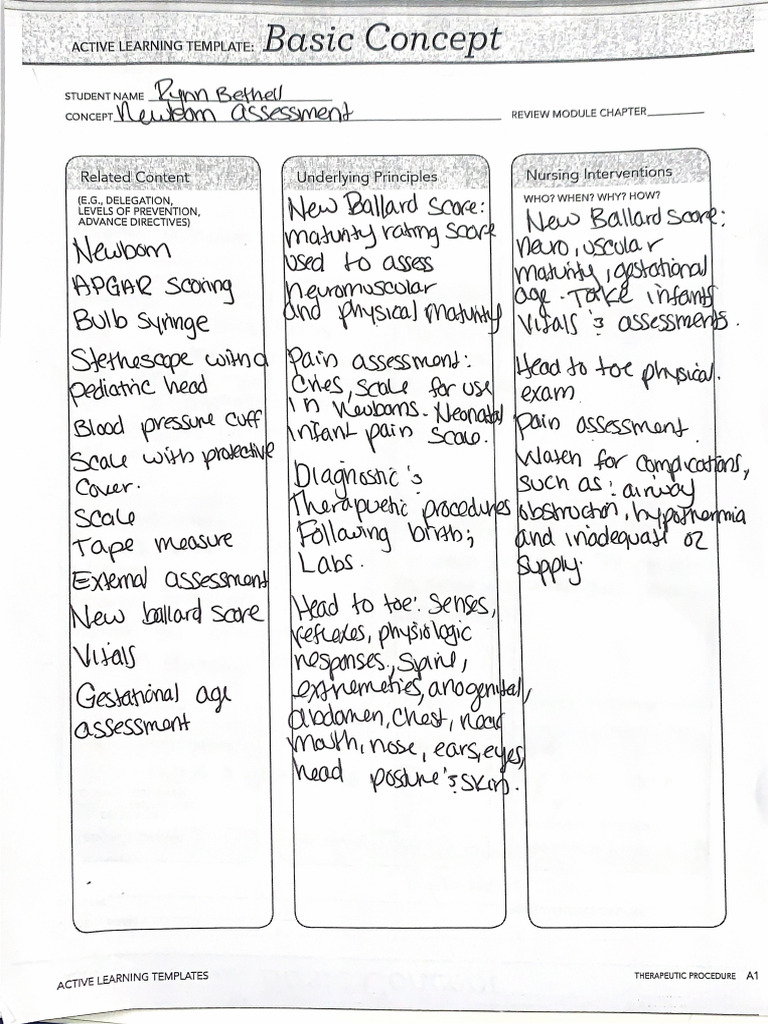 ACTIVE LEARNING TEMPLATE: Basic Concept
STUDENT NAME Rynn Bethell
CONCEPT Newborn assessment
REVIEW MODULE CHAPTER
Related Content
(E.G., DELEGATION,
LEVELS OF PREVENTION,
ADVANCE DIRECTIVES)
Newborn
APGAR scoring
Bulb syringe
Stethescope with a
pediatric head
Blood pressure cuff
Scale with protective
cover.
Scale
Tape measure
External assessment
New ballard score
Vitals
Gestational age
assessment
Underlying Principles
New Ballard Score:
maturity rating score
used to assess
neuromuscular
and physical maturity
Pain assessment:
Cries, scale for use
in newborns. Neonatal
infant pain scale.
Diagnostic &
Therapuetic procedures
Following birth;
Labs.
Head to toe: Senses,
reflexes, physiologic
responses, spine,
extremeties, anogenital,
abdomen, chest, neck
mouth, nose, ears, eyes,
head posture & skin.
Nursing Interventions
WHO? WHEN? WHY? HOW?
New Ballard Score:
neuro, uscular
maturity, gestational
age. Take infants
vitals & assessments.
Head to toe physical.
exam
Pain assessment.
Watch for complications,
such as: airway
obstructon, hypothermia
and inadequate O2
supply.
ACTIVE LEARNING TEMPLATES
THERAPEUTIC PROCEDURE A1